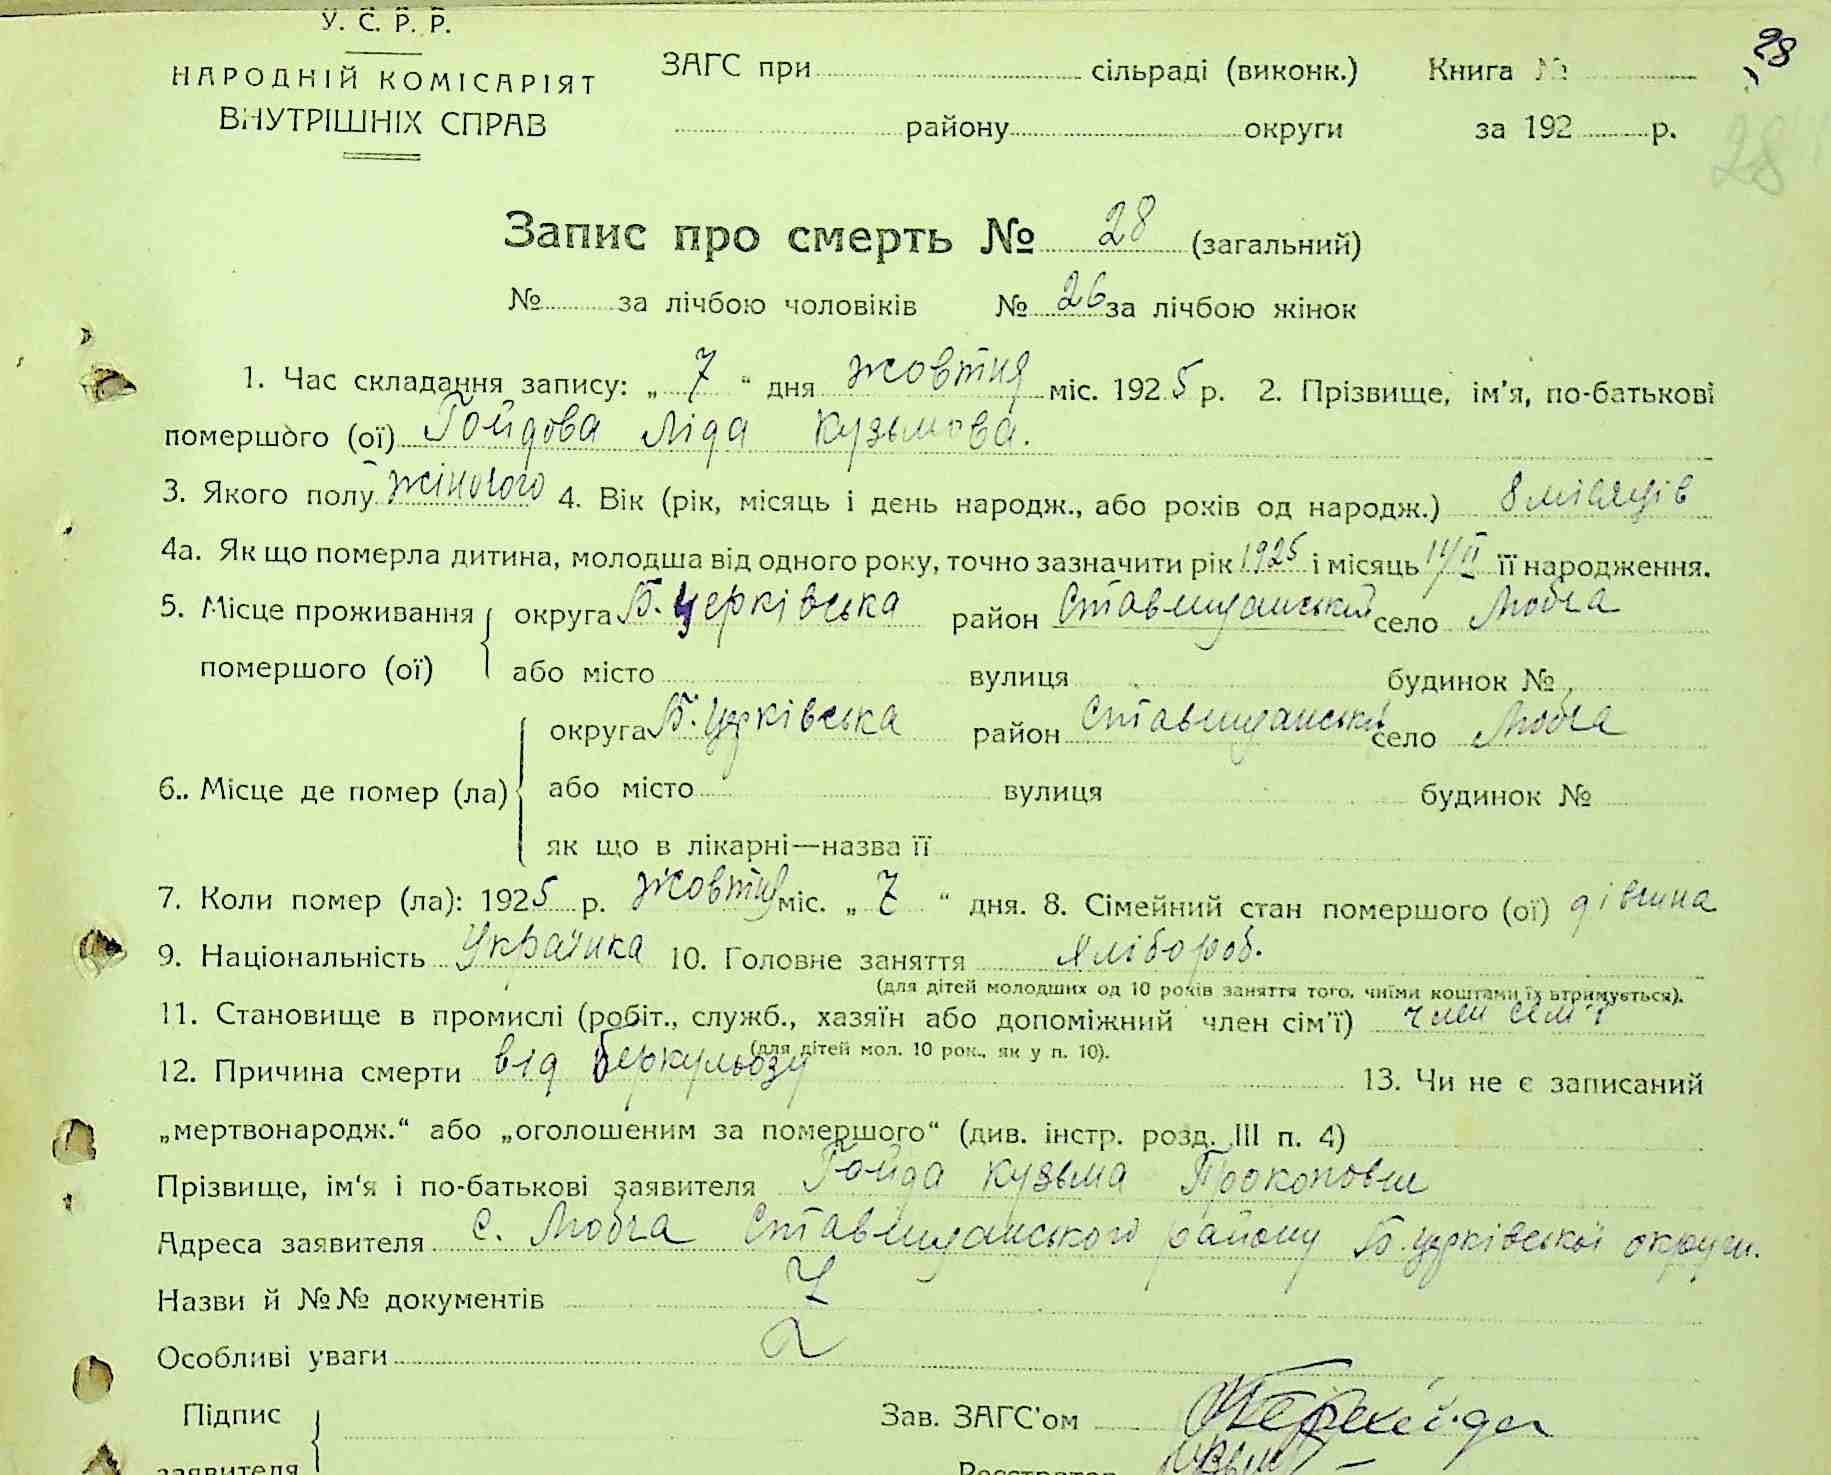 У. С. Р. Р.
НАРОДНІЙ КОМІСАРІЯТ
ВНУТРІШНІХ СПРАВ
ЗАГС при сільраді (виконк.) Книга №
району округи за 192 р.
28
28
Запис про смерть № 28 (загальний)
№ за лічбою чоловіків № 26 за лічбою жінок
1. Час складання запису: „ 7 “ дня жовтня міс. 1925 р. 2. Прізвище, ім'я, по-батькові
помершого (ої) Гойдова Ліда Кузьмова.
3. Якого полу жіночого 4. Вік (рік, місяць і день народж., або років од народж.) 8 місяців
4а. Як що померла дитина, молодша від одного року, точно зазначити рік 1925 і місяць 14/II її народження.
5. Місце проживання округа Б. Церківська район Ставищанський село Любча
помершого (ої) або місто вулиця будинок №
округа Б. Церківська район Ставищанський село Любча
6.. Місце де помер (ла) або місто вулиця будинок №
як що в лікарні—назва її
7. Коли помер (ла): 1925 р. жовтня міс. „ 7 “ дня. 8. Сімейний стан помершого (ої) дівчина
9. Національність Українка 10. Головне заняття хлібороб.
(для дітей молодших од 10 років заняття того, чиїми коштами їх втримується).
11. Становище в промислі (робіт., служб., хазяїн або допоміжний член сім'ї) член сем'ї
(для дітей мол. 10 рок., як у п. 10).
12. Причина смерти від беркульозу 13. Чи не є записаний
„мертвонародж.“ або „оголошеним за помершого“ (див. інстр. розд. III п. 4)
Прізвище, ім'я і по-батькові заявителя Гойда Кузьма Прокопович
Адреса заявителя с. Любча Ставищанського району Б. Церківської округи.
Назви й №№ документів
Особливі уваги
Підпис
заявителя
Зав. ЗАГС'ом
Реєстратор